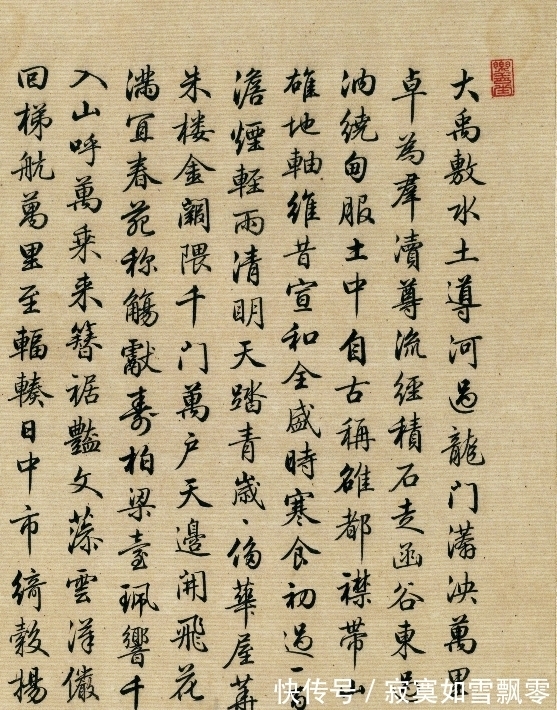 大禹敷水土導河過龍門泱萬里
卓為羣瀆尊流經積石走函谷東過
汭繞甸服土中自古稱雒都襟帶山
雄地軸維昔宣和全盛時寒食初過一百
澹煙輕雨清明天踏青歲〻侈華屋
朱楼金闕隈千門萬户天邊開飛花
滿宜春苑称觴獻壽柏梁臺珮響千
入山呼萬乗来簪裾豔文藻雲漢儼
回梯航萬里至輻輳日中市綺縠揚
快传号 / 寂寞如雪飘零